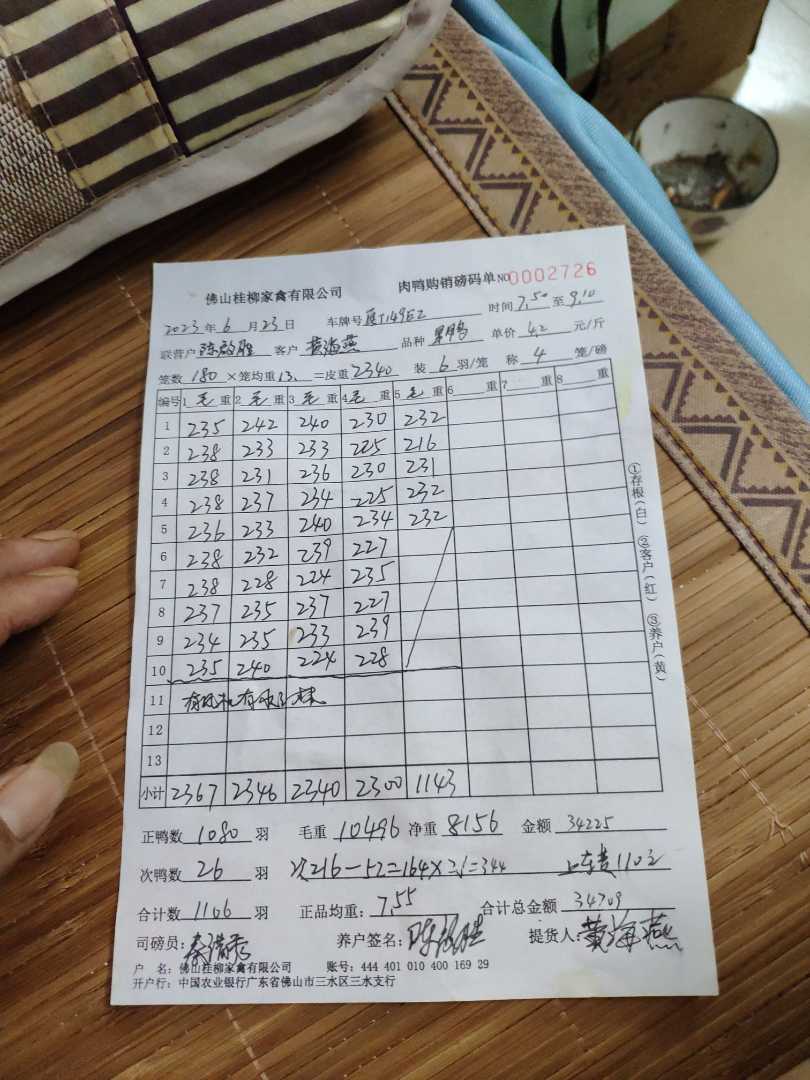 佛山桂柳家禽有限公司 肉鸭购销磅码单 NO 0002726
2023年6月23日 车牌号 149E2 时间7,50至9,10
联营户 客户 黄海燕 品种 单价 4,2 元/斤
笼数 180 ×笼均重13. =皮重2340 装 6 羽/笼 称 4 笼/磅
编号 1 毛 重 2 毛 重 3 毛 重 4 毛 重 5 毛 重 6 重 7 重 8 重
1 235 242 240 230 232
2 238 233 233 225 216
3 238 231 236 230 231
4 238 237 234 225 232
5 236 233 240 234 232
6 238 232 239 227
7 238 228 224 235
8 237 235 237 227
9 234 235 233 239
10 235 240 224 228
11
12
13
小计 2367 2346 2340 2300 1143
正鸭数 1080 羽 毛重 10496 净重 8156 金额 34225
次鸭数 26 羽 次216-52=164×2.1=344 上车费110元
合计数 1106 羽 正品均重: 7,55 合计总金额 34709
司磅员: 养户签名: 提货人: 黄海燕
户 名: 佛山桂柳家禽有限公司 账号: 444 401 010 400 169 29
开户行: 中国农业银行广东省佛山市三水区三水支行
①存根(白) ②客户(红) ③养户(黄)